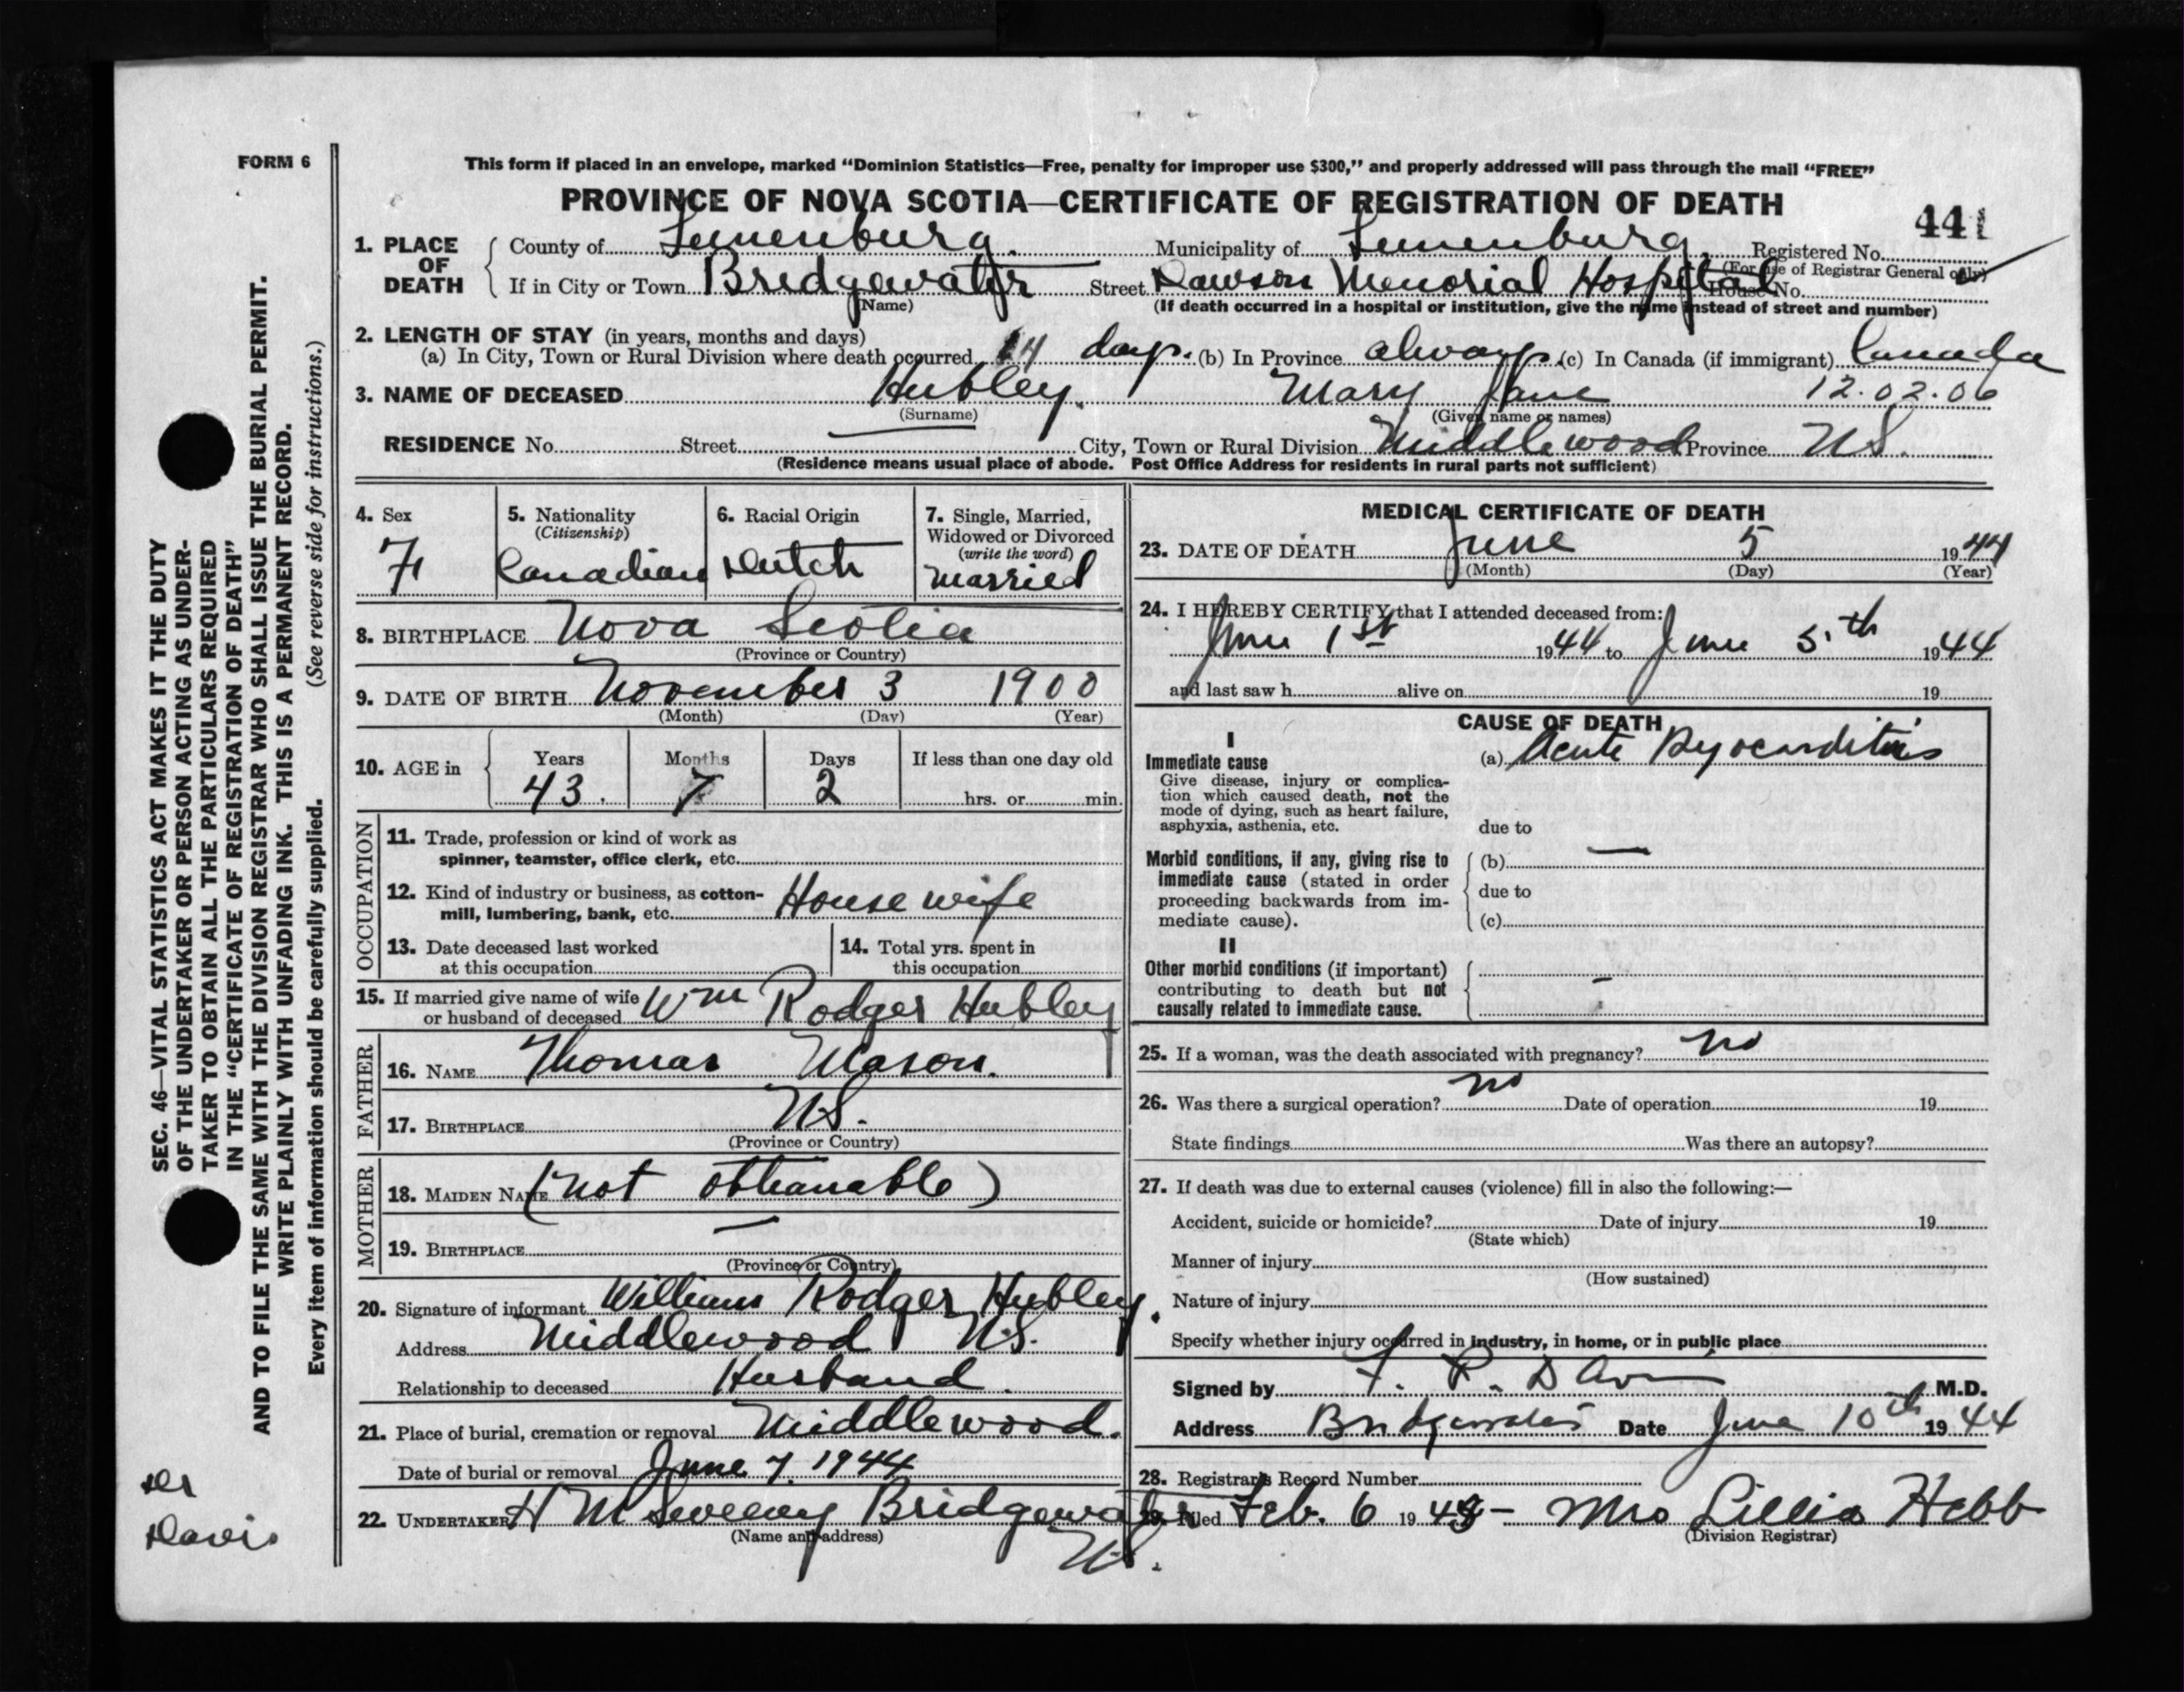 FORM 6
This form if placed in an envelope, marked "Dominion Statistics—Free, penalty for improper use $300," and properly addressed will pass through the mail "FREE"
PROVINCE OF NOVA SCOTIA—CERTIFICATE OF REGISTRATION OF DEATH
441
1. PLACE OF DEATH County of Lunenburg. Municipality of Lunenburg. Registered No.
(For use of Registrar General only)
If in City or Town Bridgewater Street Dawson Memorial Hospital House No.
(Name) (If death occurred in a hospital or institution, give the name instead of street and number)
2. LENGTH OF STAY (in years, months and days)
(a) In City, Town or Rural Division where death occurred 14 days. (b) In Province always. (c) In Canada (if immigrant) Canada
3. NAME OF DECEASED Hubley, Mary Jane 12.02.06
(Surname) (Given name or names)
RESIDENCE No. Street City, Town or Rural Division Middlewood Province N.S.
(Residence means usual place of abode. Post Office Address for residents in rural parts not sufficient)
4. Sex
F
5. Nationality
(Citizenship)
Canadian
6. Racial Origin
Dutch
7. Single, Married,
Widowed or Divorced
(write the word)
married
8. BIRTHPLACE Nova Scotia
(Province or Country)
9. DATE OF BIRTH November 3 1900
(Month) (Day) (Year)
10. AGE in Years Months Days If less than one day old
43. 7 2 hrs. or min.
OCCUPATION
11. Trade, profession or kind of work as
spinner, teamster, office clerk, etc.
12. Kind of industry or business, as cotton-
mill, lumbering, bank, etc. House wife
13. Date deceased last worked
at this occupation
14. Total yrs. spent in
this occupation
15. If married give name of wife
or husband of deceased Wm Rodger Hubley
FATHER
16. NAME Thomas Mason.
17. BIRTHPLACE N.S.
(Province or Country)
MOTHER
18. MAIDEN NAME (not obtianable)
19. BIRTHPLACE —
(Province or Country)
20. Signature of informant William Rodger Hubley.
Address Middlewood N.S.
Relationship to deceased Husband.
21. Place of burial, cremation or removal Middlewood.
Date of burial or removal June 7, 1944
22. UNDERTAKER H McSweeny Bridgewater
(Name and address)
N.S.
MEDICAL CERTIFICATE OF DEATH
23. DATE OF DEATH June 5 1944
(Month) (Day) (Year)
24. I HEREBY CERTIFY that I attended deceased from:
June 1st 1944 to June 5th 1944
and last saw h alive on 19
CAUSE OF DEATH
I
Immediate cause (a) Acute Myocarditis
Give disease, injury or complica-
tion which caused death, not the
mode of dying, such as heart failure,
asphyxia, asthenia, etc. due to
Morbid conditions, if any, giving rise to (b) —
immediate cause (stated in order
proceeding backwards from im- due to
mediate cause). (c)
II
Other morbid conditions (if important)
contributing to death but not —
causally related to immediate cause.
25. If a woman, was the death associated with pregnancy? no
26. Was there a surgical operation? no Date of operation 19
State findings Was there an autopsy?
27. If death was due to external causes (violence) fill in also the following:—
Accident, suicide or homicide? Date of injury 19
(State which)
Manner of injury
(How sustained)
Nature of injury
Specify whether injury occurred in industry, in home, or in public place
Signed by F. R. Davis M.D.
Address Bridgewater Date June 10th 1944
28. Registrar's Record Number
29. Filed Feb. 6 1945 – Mrs Lillia Hebb
(Division Registrar)
SEC. 46—VITAL STATISTICS ACT MAKES IT THE DUTY
OF THE UNDERTAKER OR PERSON ACTING AS UNDER-
TAKER TO OBTAIN ALL THE PARTICULARS REQUIRED
IN THE "CERTIFICATE OF REGISTRATION OF DEATH"
AND TO FILE THE SAME WITH THE DIVISION REGISTRAR WHO SHALL ISSUE THE BURIAL PERMIT.
WRITE PLAINLY WITH UNFADING INK. THIS IS A PERMANENT RECORD.
Every item of information should be carefully supplied. (See reverse side for instructions.)
Dr
Davis